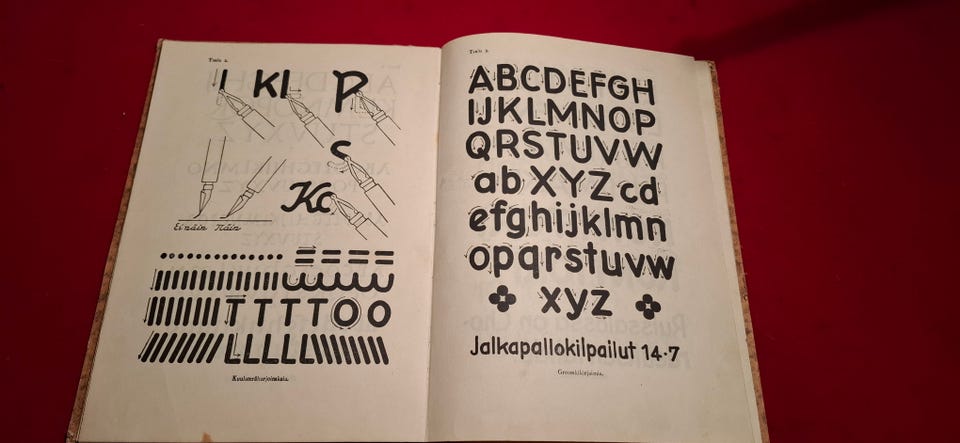 Taulu 2.
I KL P
c
Kc
Ei näin Näin
TTTTTOO
LLLLL
Kuulateräharjoituksia.
Taulu 3.
ABCDEFGH
IJKLMNOP
QRSTUVW
ab XYZ cd
efghijklmn
opqrstuvw
xyz
Jalkapallokilpailut 14·7
Groteskikirjaimia.